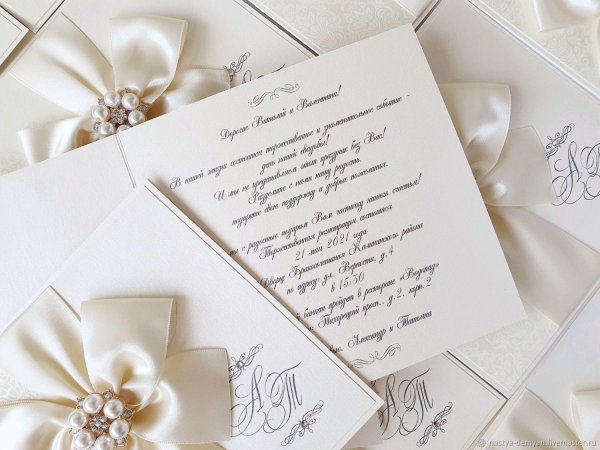 Дорогие Виталий и Валентина!
В нашей жизни состоится торжественное и знаменательное событие -
день нашей свадьбы!
И мы не представляем этот праздник без Вас!
Разделите с нами нашу радость,
подарите свою поддержку и добрые пожелания.
с радостью подарим Вам частичку нашего счастья!
Торжественная регистрация состоится
21 мая 2021 года
Дворце Бракосочетания Калининского района
по адресу: ул. Верности, д.4
в 15:30
банкет пройдет в ресторане «Водопад»
Тихорецкий просп., д.2, корп.2
Александр и Татьяна
АТ
АТ
АТ
nastya-demyan.livemaster.ru